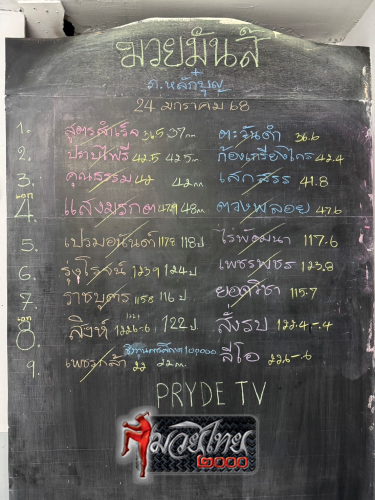 มวยมันส์
+
ภ.หลักบุญ
24 มกราคม 68
1. สุตรสำเร็จ 36.5 37ก ตะวันดำ 36.6
2. ปราบไพรี 42.5 42.5ก ก้องเกรียงไกร 42.4
3. คุณธรรม 42 42ก เสกสรร 41.8
เอก
4 แสงมรกต 47.9 48ก ดวงพลอย 47.6
5. เปรมอนันต์ 117.8 118 ป. ไร่พัฒนา 117.6
6. รุ่งโรจน์ 123.9 124 ป. เพชรพชร 123.8
7. ราชบุตร 115.8 116 ป. ยอดวิชา 115.7
เอก
8. สิงห์ 122.6-.6 122 ป. สั่งรบ 122.4-.4
9. เพชรกล้า 22 22ก. ลีโอ 22.6-.6
PRYDE TV
มวยไทย
2000